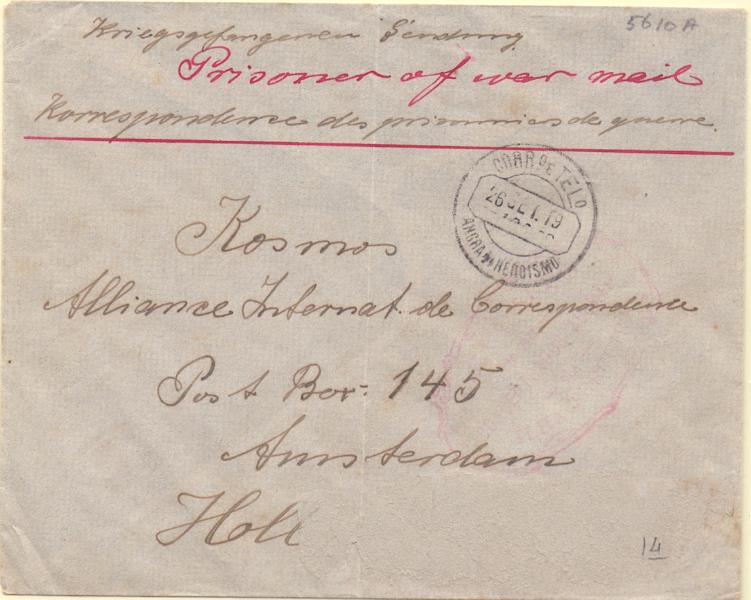 5610A
Kriegsgefangenen Sendung
Prisoner of war mail
Korrespondence des prisonniers de guerre.
CORR. DE TELO
26 SET. 19
ANGRA DO HEROISMO
Kosmos
Alliance Internat. de Correspondence
Post Box: 145
Amsterdam
Holl
14